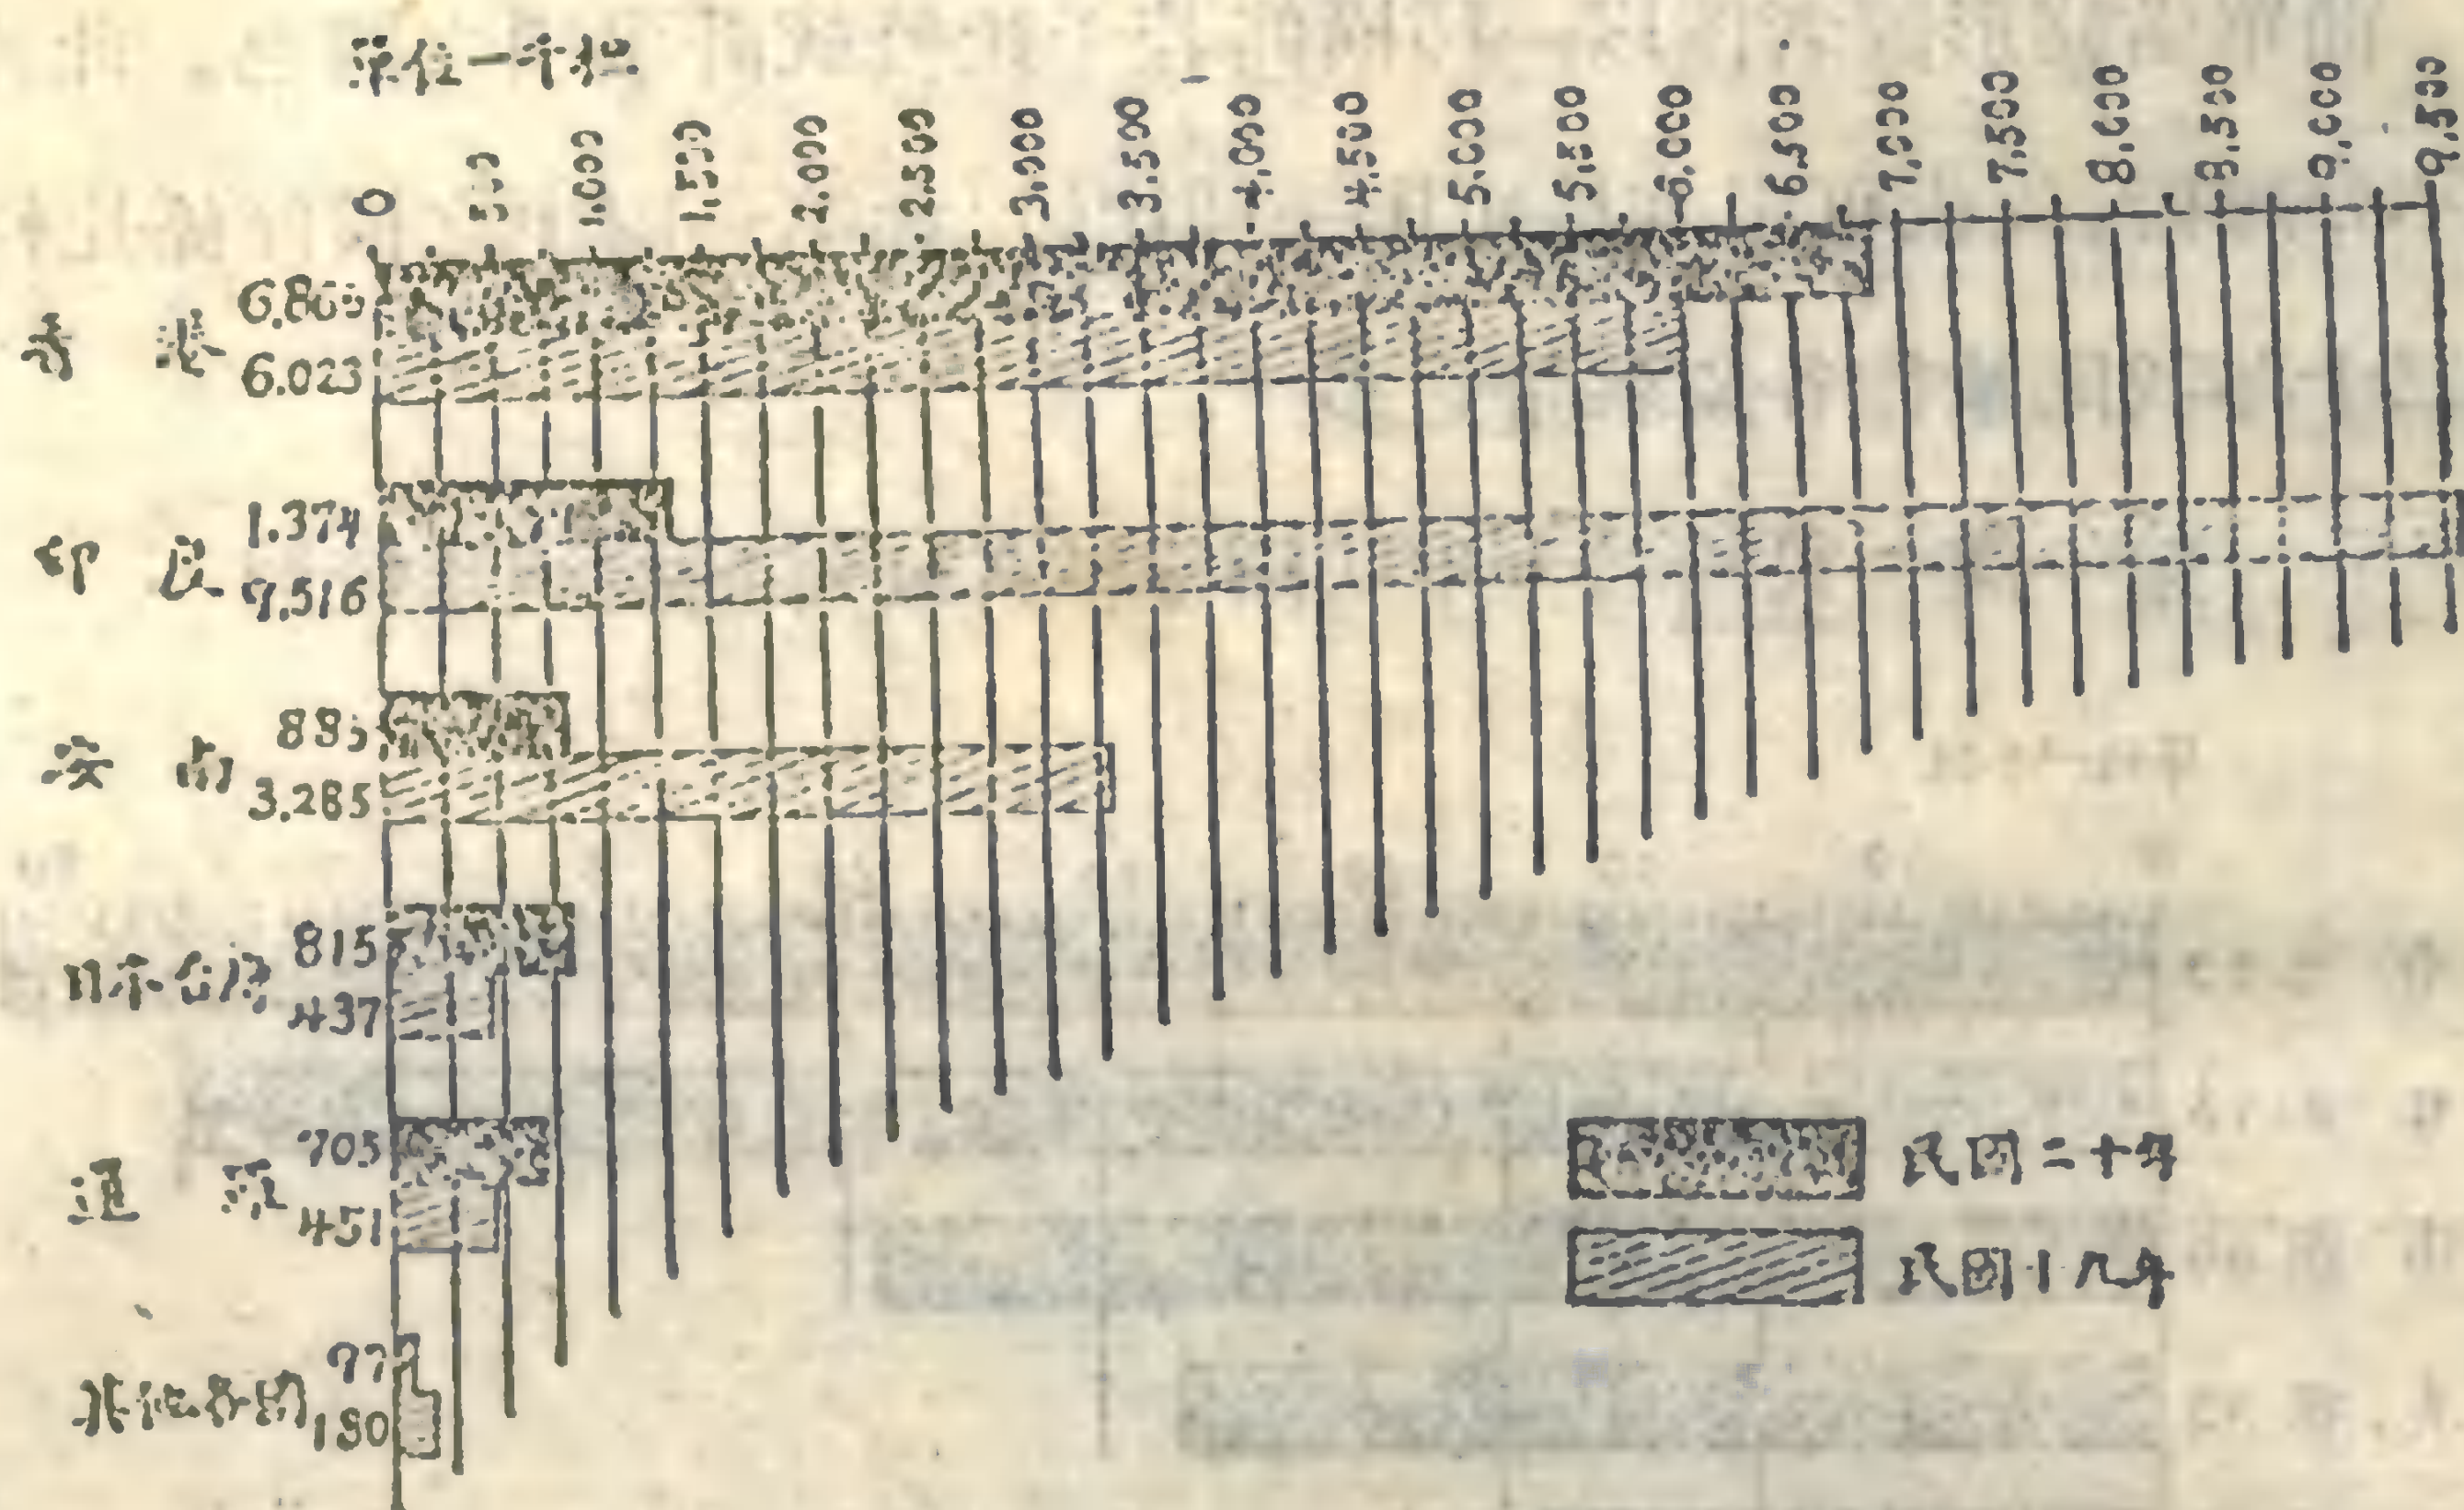 單位一千担
0 500 1.000 1.500 2.000 2.500 3.000 3.500 4.000 4.500 5.000 5.500 6.000 6.500 7.000 7.500 8.000 8.500 9.000 9.500
6.865
香 港 6.023
1.374
印 度 9.516
885
安 南 3.285
815
日本台灣 437
705
暹 羅 451
77
其他各國 180
民國二十年
民國十九年